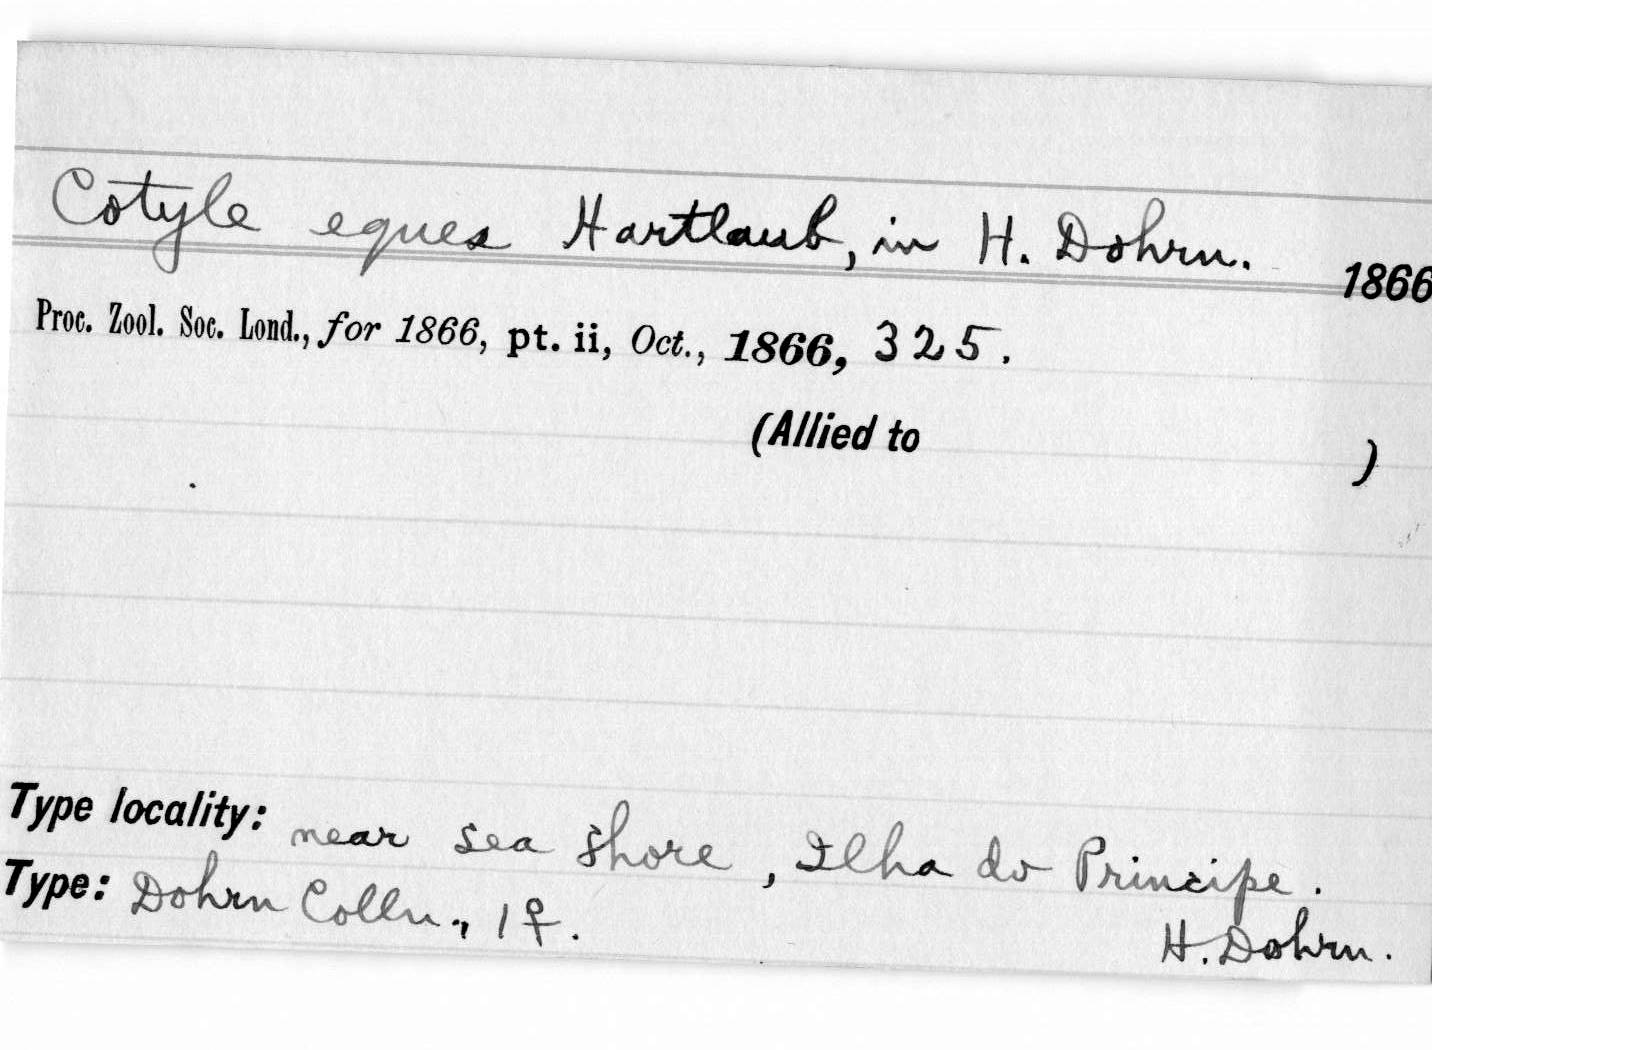 Cotyle eques Hartlaub, in H. Dohrn. 1866
Proc. Zool. Soc. Lond., for 1866, pt. ii, Oct., 1866, 325.
(Allied to )
Type locality: near sea shore, Ilha do Principe.
Type: Dohrn Colln., 1♀. H. Dohrn.